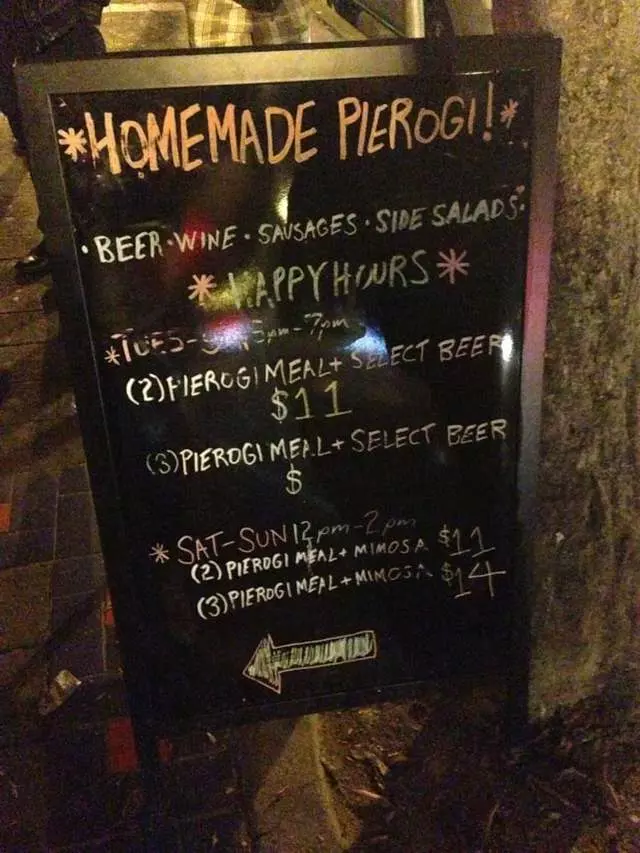 *HOMEMADE PIEROGI!*
·BEER·WINE·SAUSAGES·SIDE SALADS·
*HAPPY HOURS*
*TUES- 5pm-7pm
(2)PIEROGI MEAL+ SELECT BEER
$11
(3)PIEROGI MEAL+ SELECT BEER
$
* SAT-SUN 12pm-2pm
(2) PIEROGI MEAL+ MIMOSA $11
(3)PIEROGI MEAL+MIMOSA $14